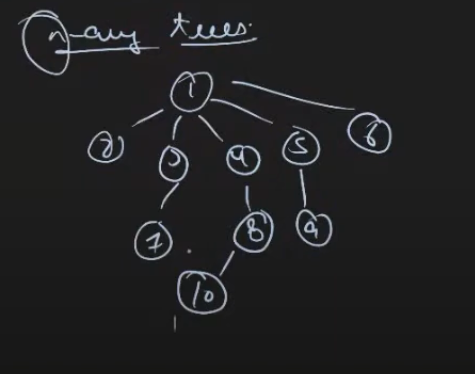 n-ary trees.
1
2 3 4 5 6
7 8 9
10